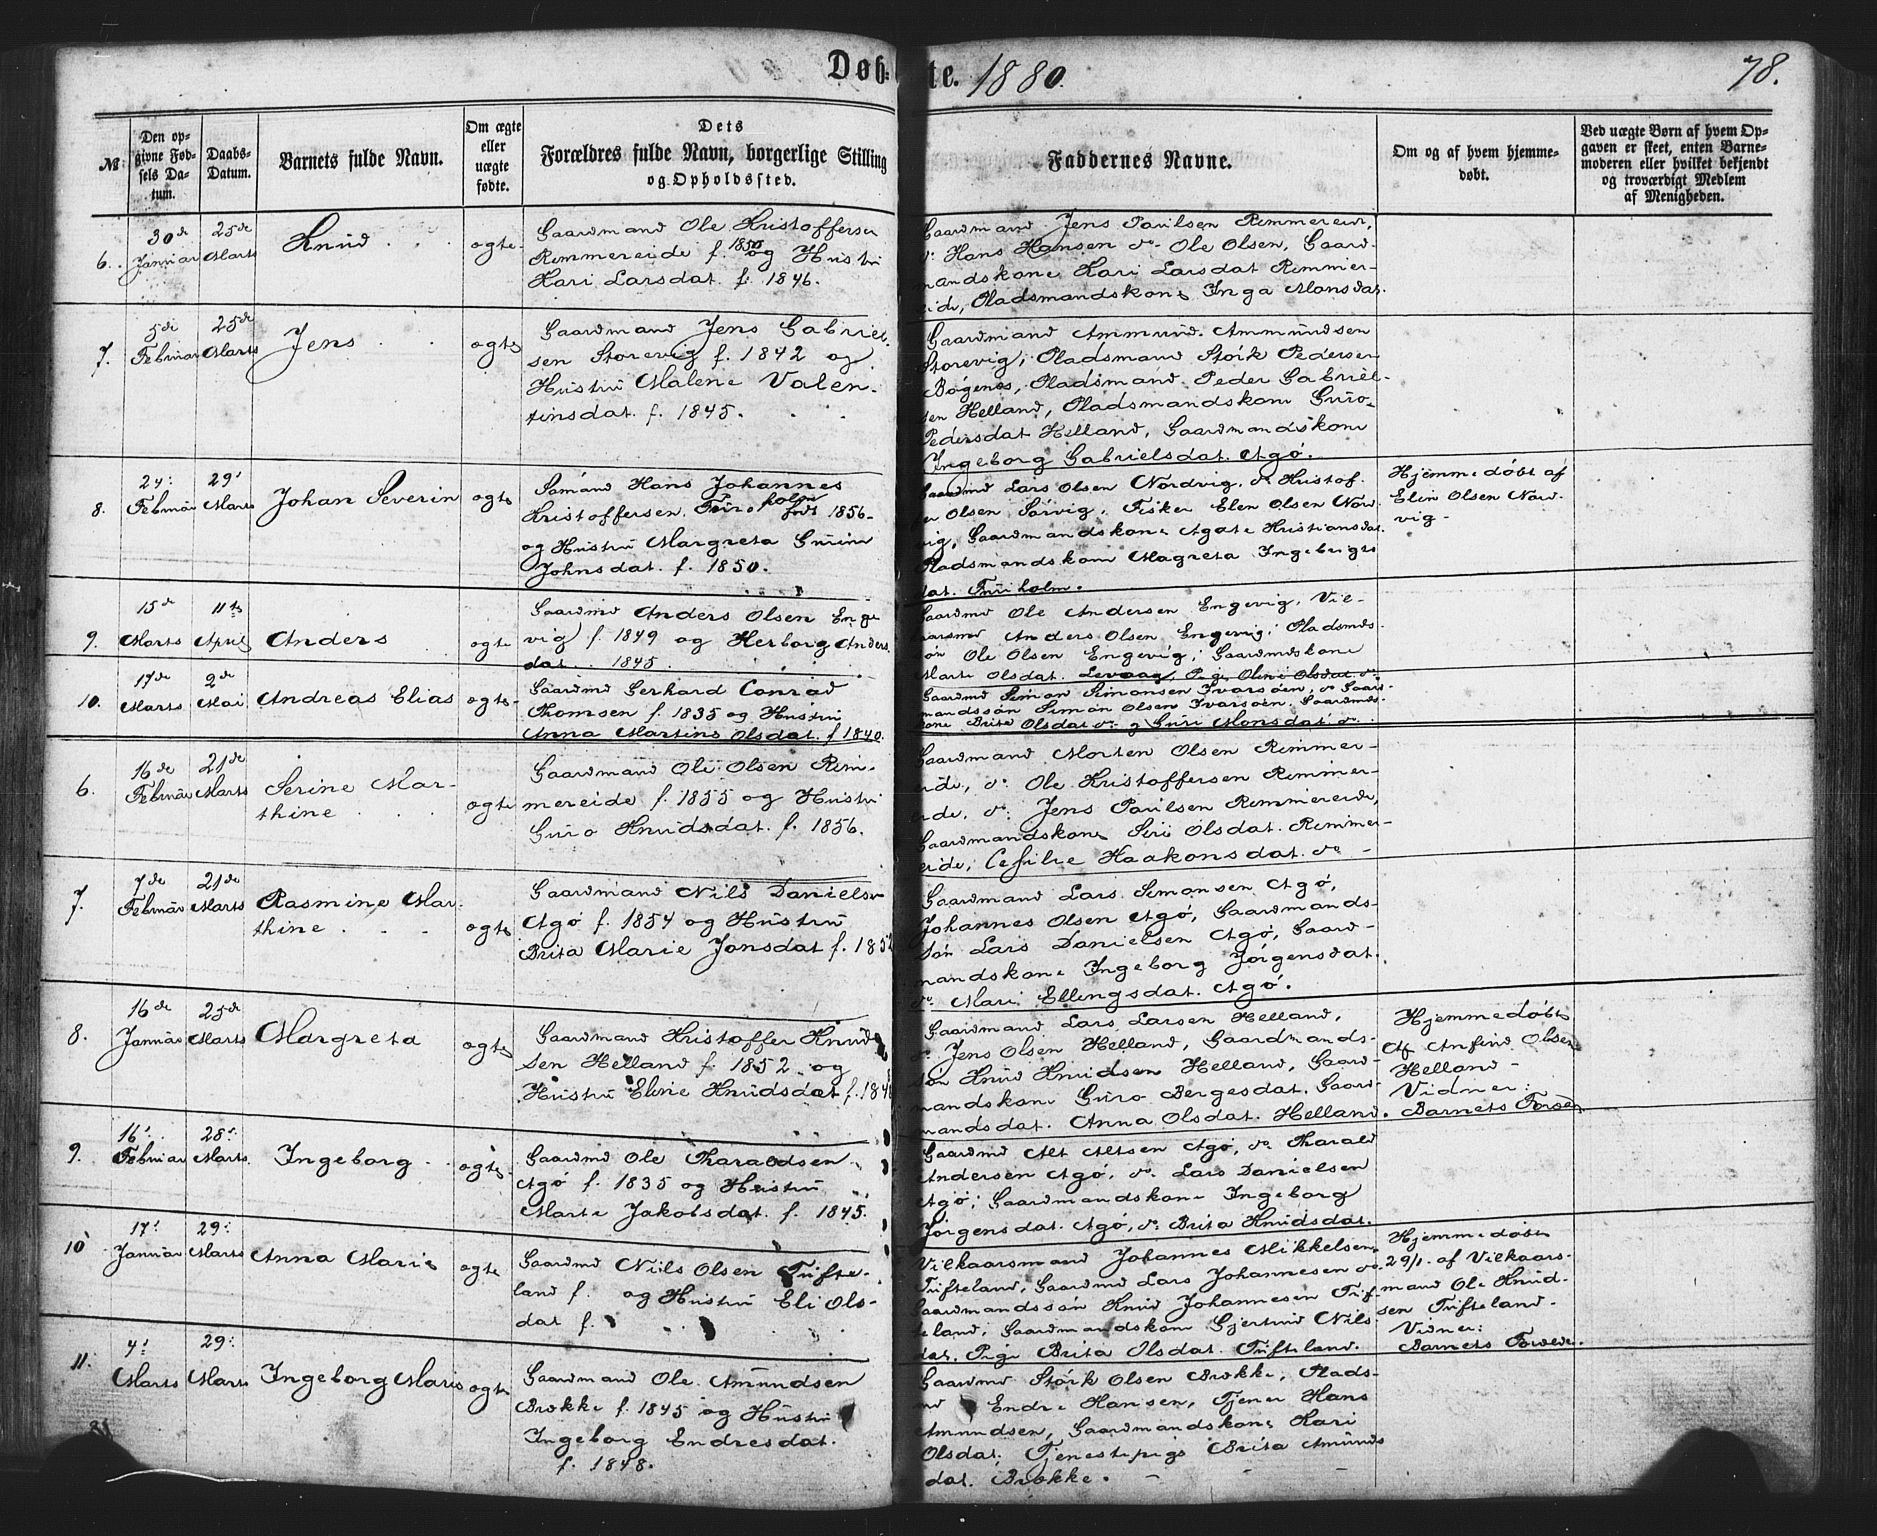 Døb-te. 1880.
78.
№
Den op-
givne Fød-
sels Da-
tum.
Daabs-
Datum.
Barnets fulde Navn.
Om ægte
eller
uægte
fødte.
Dets
Forældres fulde Navn, borgerlige Stilling
og Opholdssted.
Faddernes Navne.
Om og af hvem hjemme-
døbt.
Ved uægte Børn af hvem Op-
gaven er skeet, enten Barne-
moderen eller hvilket bekjendt
og troværdigt Medlem
af Menigheden.
6.
30de
Januar
25de
Marts
Knud
ægte
Gaardmand Ole Kristoffersen
Rimmereide f. 1850 og Hustru
Kari Larsdat. f. 1846.
Gaardmand Jens Paulsen Rimmereide,
do Hans Hansen do Ole Olsen, Gaard-
mandskone Kari Larsdat Rimmer-
eide, Pladsmandskone Inga Monsdat.
7.
5de
Februar
25de
Marts
Jens
ægte
Gaardmand Jens Gabriel-
sen Storevig f. 1842 og
Hustru Malene Valen-
tinsdat. f. 1845.
Gaardmand Ammund Ammundsen
Storevig, Pladsmand Störk Pedersen
Bøgenes, Pladsmand Peder Gabriel-
sen Helland, Pladsmandskone Guro
Pedersdat Helland, Gaardmandskone
Ingeborg Gabrielsdat. Agø.
8.
24:
Februar
29'
Marts
Johan Severin
ægte
Sømand Hans Johannes
Kristoffersen Furuholm født 1856
og Hustru Margreta Gurine
Johnsdat. f. 1850.
Gaardmd Lars Olsen Nordvig, do Kristof-
fer Olsen Sørvig, Fisker Elen Olsen Nord-
vig, Gaardmandskone Agate Kristiansdat.
Pladsmandskone Magreta Ingebergts
dat. Furuholm.
Hjemmedøbt af
Elin Olsen Nord-
vig
9.
15de
Marts
11te
April
Anders
ægte
Gaardmd Anders Olsen Enge
vig f. 1849 og Herborg Anders
dat. 1845.
Gaardmd Ole Andersen Engevig, Vil-
kaarsmd Anders Olsen Engevig, Pladsmds-
søn Ole Olsen Engevig, Gaardmdskone
Marte Olsdat. Levaag, Pige Oline Olsdat do
10.
17de
Marts
2de
Mai
Andreas Elias
ægte
Gaardmd Gerhard Conrad
Thomsen f. 1835 og Hustru
Anna Martine Olsdat. f 1840.
Gaardmd Simon Simonsen Ivarsøen, do Gaard-
mandssøn Simon Olsen Ivarsøen, Gaardmds-
kone Brita Olsdat do og Guri Monsdat do
6.
16de
Februar
21de
Marts
Serine Mar-
thine
ægte
Gaardmand Ole Olsen Rim-
mereide f. 1855 og Hustru
Guro Knudsdat. f. 1856.
Gaardmand Morten Olsen Rimmer-
eide, do Ole Kristoffersen Rimmer-
eide, do Jens Paulsen Rimmereide,
Gaardmandskone Siri Olsdat. Rimmer-
eide, Cesilie Haakonsdat. do
7.
7de
Februar
21de
Marts
Rasmine Mar-
thine
ægte
Gaardmand Nils Danielsen
Agø f. 1854 og Hustru
Brita Marie Jonsdat f. 1852
Gaardmand Lars Simonsen Agø,
Johannes Olsen Agø, Gaardmands-
søn Lars Danielsen Agø, Gaard-
mandskone Ingeborg Jørgensdat.
do Mari Ellingsdat. Agø.
8.
16de
Januar
25de
Marts
Margreta
ægte
Gaardmand Kristoffer Knud-
sen Helland f. 1852 og
Hustru Eline Knudsdat f. 184
Gaardmand Lars Larsen Helland,
do Jens Olsen Helland, Gaardmands-
søn Knud Knudsen Helland, Gaard-
mandskone Guro Bergesdat. Gaard-
mandsdat. Anna Olsdat. Helland.
Hjemmedøbt
Af Anfind Olsen
Helland
Vidner:
Barnets
9.
16'
Februar
28'
Marts
Ingeborg
ægte
Gaardmd Ole Tharaldsen
Agø f. 1835 og Hustru
Marte Jakobsdat. f. 1845.
Gaardmd Alt Altsen Agø, do Tharald
Andersen Agø, do Lars Danielsen
Agø, Gaardmandskone Ingeborg
Jørgensdat. Agø, do Brita Knudsdat.
10
17'
Januar
29:
Marts
Anna Marie
ægte
Gaardmd Nils Olsen Tufte-
land f. og Hustru Eli Ols-
dat f.
Vilkaarsmand Johannes Mikkelsen
Tufteland, Gaardmd Lars Johannesen do
Gaardmandssøn Knud Johannesen Tuf-
teland, Gaardmandskone Gjertrud Nils
dat. Pige Brita Olsdat. Tufteland.
Hjemmedøbt
29/1. af Vilkaars-
mand Ole Knud-
sen Tufteland.
Vidner:
Barnets Forældre.
11.
4'
Marts
29:
Marts
Ingeborg Marie
ægte
Gaardmand Ole Amundsen
Brække f. 1845 og Hustru
Ingeborg Endresdat.
f. 1848.
Gaardmd Störk Olsen Brække, Plads-
md Endre Hansen, Tjener Hans
Amundsen, Gaardmandskone Kari
Olsdat, Tjenestepige Brita Amunds
dat. Brække.